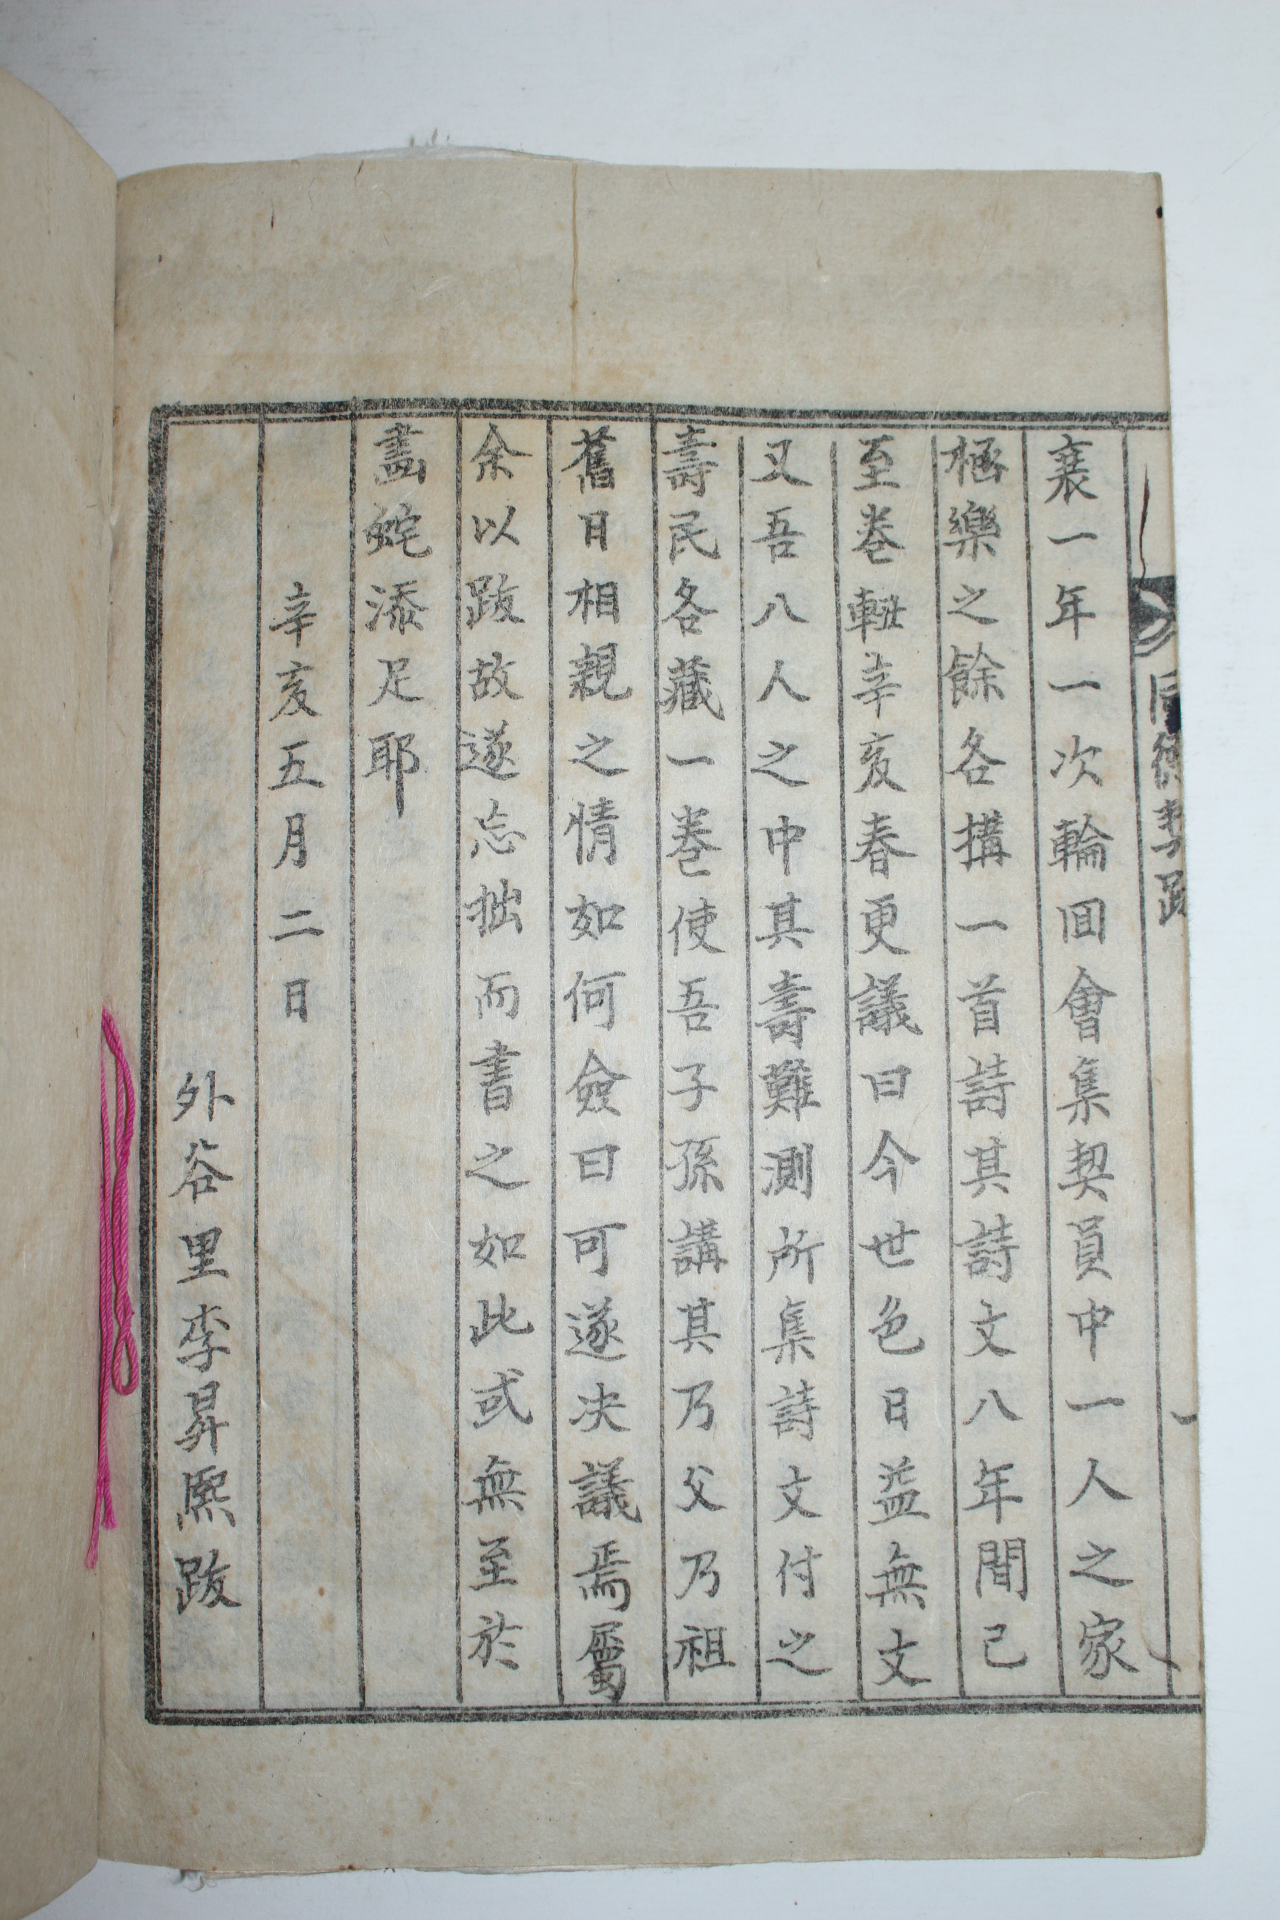 同德契跋
一
襄一年一次輪回會集契員中一人之家
極樂之餘各搆一首詩其詩文八年間已
至卷軸辛亥春更議曰今世色日益無文
又吾八人之中其壽難測所集詩文付之
壽民各藏一卷使吾子孫講其乃父乃祖
舊日相親之情如何僉曰可遂决議焉屬
余以跋故遂忘拙而書之如此或無至於
畵蛇添足耶
辛亥五月二日
外谷里李昇熙跋